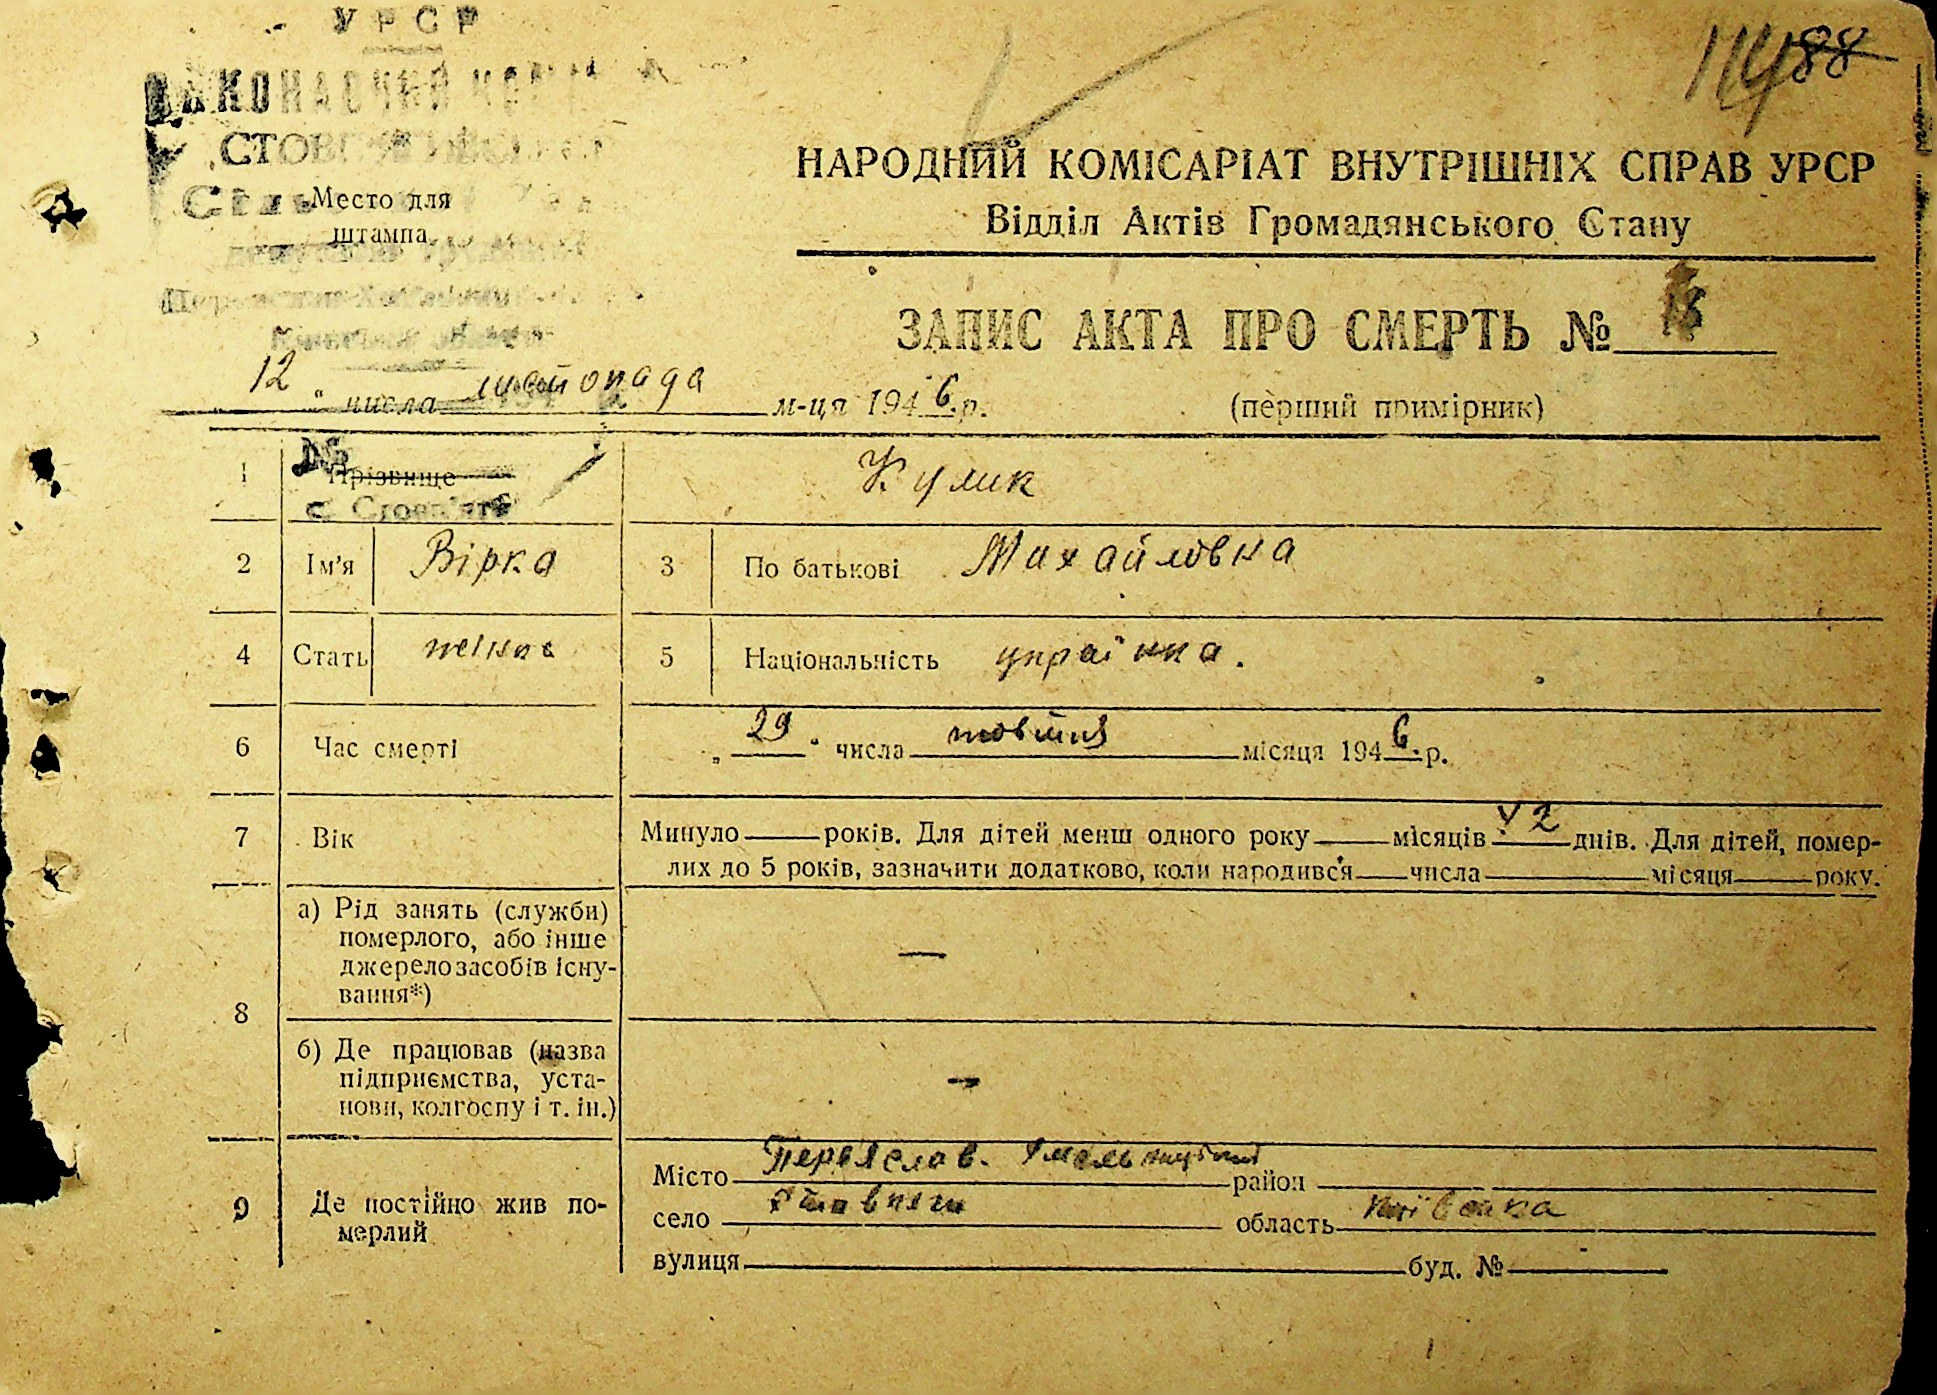 УРСР
СТОВ
Місто для
штампа
1188
НАРОДНИЙ КОМІСАРІАТ ВНУТРІШНІХ СПРАВ УРСР
Відділ Актів Громадянського Стану
ЗАПИС АКТА ПРО СМЕРТЬ №
12 " числа листопада м-ця 1946.р.
(перший примірник)
1 Прізвище Кулик
№
2 Ім'я Вірка 3 По батькові Михайловна
4 Стать жіноча 5 Національність українка.
6 Час смерті „ 29 " числа жовтня місяця 1946.р.
7 Вік Минуло років. Для дітей менш одного року місяців 2 днів. Для дітей, помер-
лих до 5 років, зазначити додатково, коли народився числа місяця року.
8 а) Рід занять (служби)
померлого, або інше
джерело засобів існу-
вання*)
—
б) Де працював (назва
підприємства, уста-
нови, колгоспу і т. ін.)
—
9 Де постійно жив по-
мерлий
Місто Переяслав. Хмельницький район
село Стовпяги область Київська
вулиця буд. №